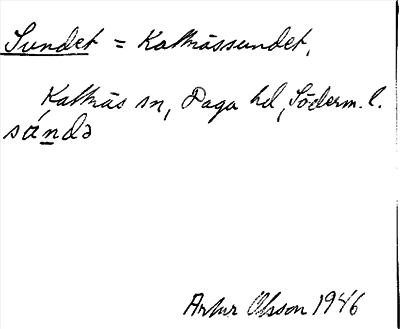 Sundet = Kattnässundet,
Kattnäs sn, Daga hd, Söderm. l.
sándə
Artur Olsson 1946